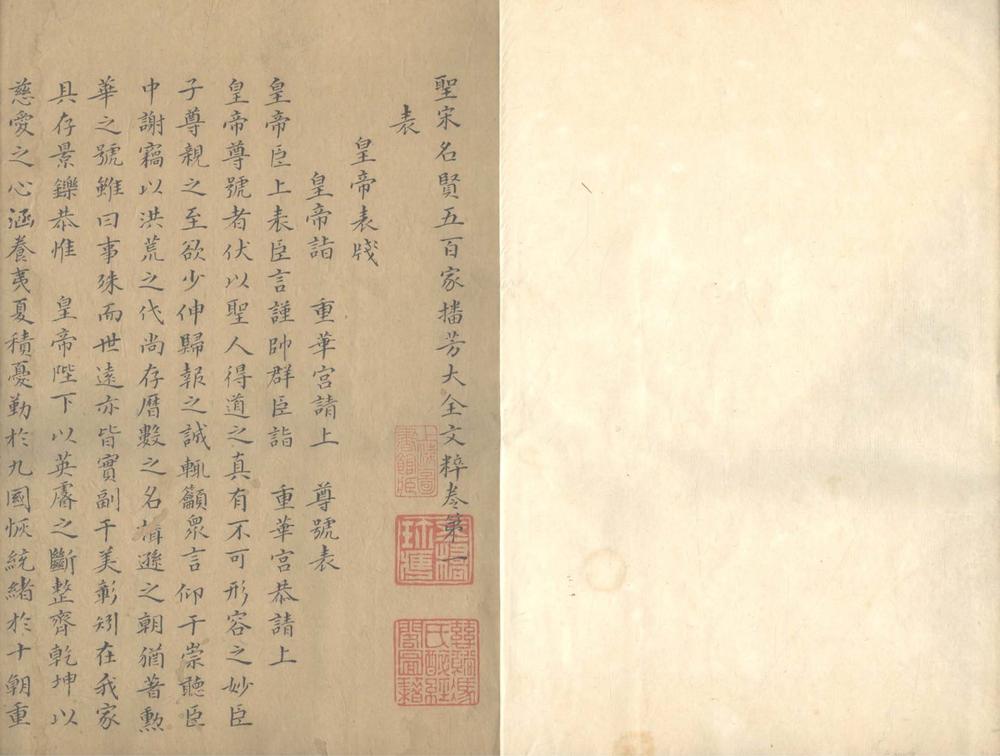 聖宋名賢五百家播芳大全文粹卷第一
表
皇帝表牋
皇帝詣　重華宮請上　尊號表
皇帝臣上表臣言謹帥群臣詣　重華宮恭請上
皇帝尊號者伏以聖人得道之真有不可形容之妙臣
子尊親之至欲少伸歸報之誠輒籲衆言仰干崇聽臣
中謝竊以洪荒之代尚存曆數之名揖遜之朝猶著勲
華之號雖曰事殊而世遠亦皆實副于美彰矧在我家
具存景鑠恭惟　皇帝陛下以英睿之斷整齊乾坤以
慈愛之心涵養夷夏積憂勤於九國恢統緒於十朝重